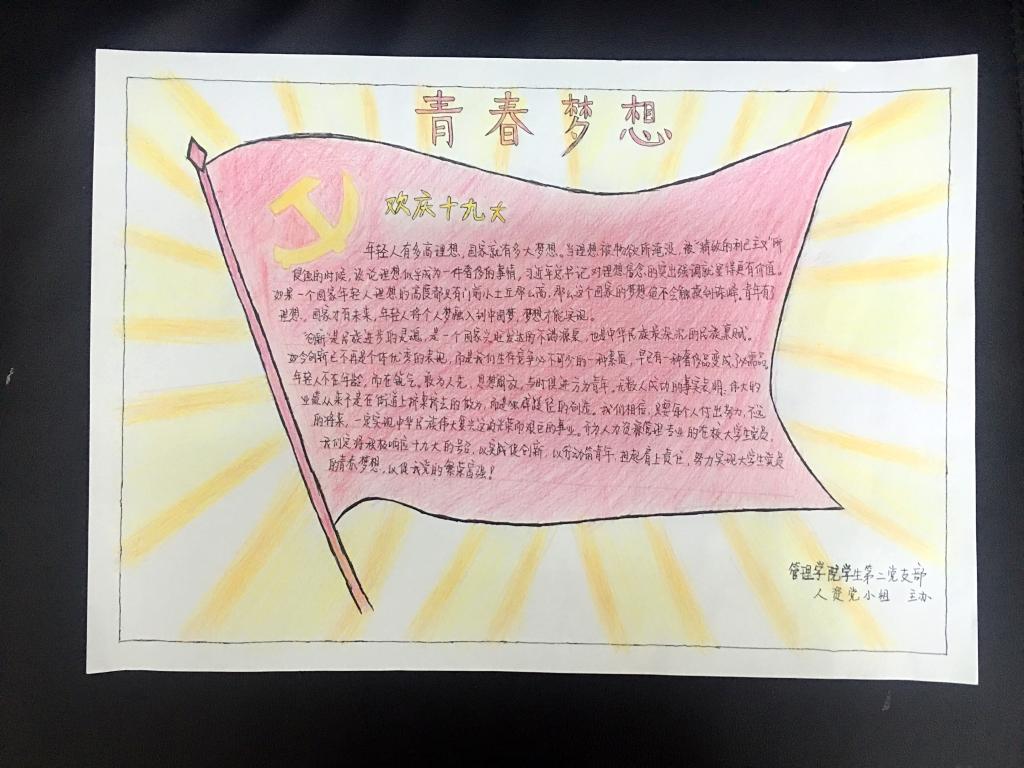 青春梦想
欢庆十九大
年轻人有多高理想，国家就有多大梦想。当理想被物欲所淹没，被“精致的利己主义”所
侵蚀的时候，谈论理想似乎成为一件奢侈的事情，习近平总书记对理想信念的突出强调就显得更有价值。
如果一个国家年轻人理想的高度都只有门前小土丘那么高，那么这个国家的梦想绝不会触摸到珠峰。青年有了
理想，国家才有未来，年轻人将个人梦融入到中国梦，梦想才能实现。
“创新”是民族进步的灵魂，是一个国家兴旺发达的不竭源泉，也是中华民族最深沉的民族禀赋。
如今创新已不再是个体优秀的表现，而是我们生存竞争必不可少的一种素质，早已有一种奢侈品变成了必需品。
年轻人不在年龄，而在锐气。敢为人先，思想解放，与时俱进方为青年。无数人成功的事实表明，伟大的
业最从来不是在街道上挤来挤去的敌方，而是独辟蹊径的创造。我们相信，只要每个人付出努力，不远
的将来，一定实现中华民族伟大复兴这项光荣而艰巨的事业。亦为人力资源管理专业的在校大学生党员，
我们定将积极响应十九大的号召，以实践促创新，以劳动铸青年，担起肩上责任，努力实现大学生党员
的青春梦想，以促我党的繁荣富强！
管理学院学生第二党支部
人资党小组 主办